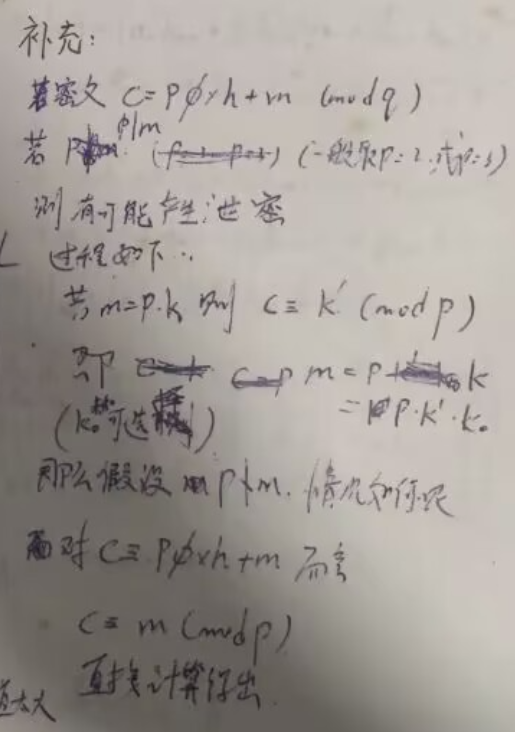 补充:
若密文 C=pφ×h+m (mod q)
若 p|m (一般取p=2,或p=3)
则有可能产生泄密
过程如下:
若m=p·k 则 C≡k' (mod p)
即 m=p k
=p·k'·k₀
(k₀ 可选)
那么假设 p∤m. 情况如何呢
面对 C≡pφ×h+m 而言
C≡m (mod p)
直接计算得出.
太大